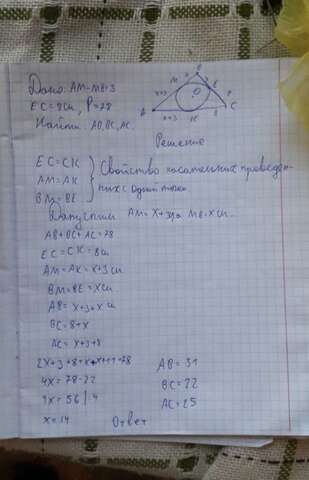 Дано: AM-MB=3
EC=8см, P=78
Найти: AB, BC, AC.
M
B
E
O
x+3
x
8
A
x+3
K
8
C
Решение
EC=CK
AM=AK
BM=BE
Свойство касательных проведен-
ных с одной точки
Допустим AM=x+3, а MB=x см
AB+BC+AC=78
EC=CK=8см
AM=AK=x+3 см
BM=BE=x см
AB=x+3+x см
BC=8+x
AC=x+3+8
2x+3+8+x+x+11=78
4x=78-22
4x=56 | 4
x=14
AB=31
BC=22
AC=25
Ответ